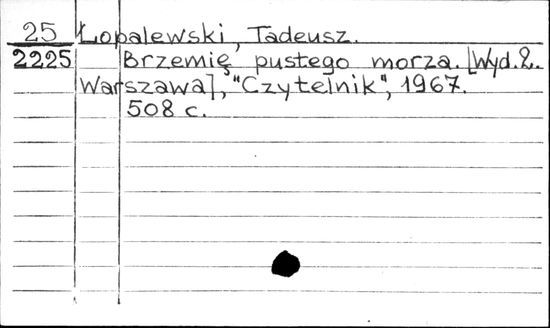 25 Łopalewski, Tadeusz.
2225 Brzemię pustego morza. [Wyd. 2.
Warszawa], "Czytelnik", 1967.
508 c.